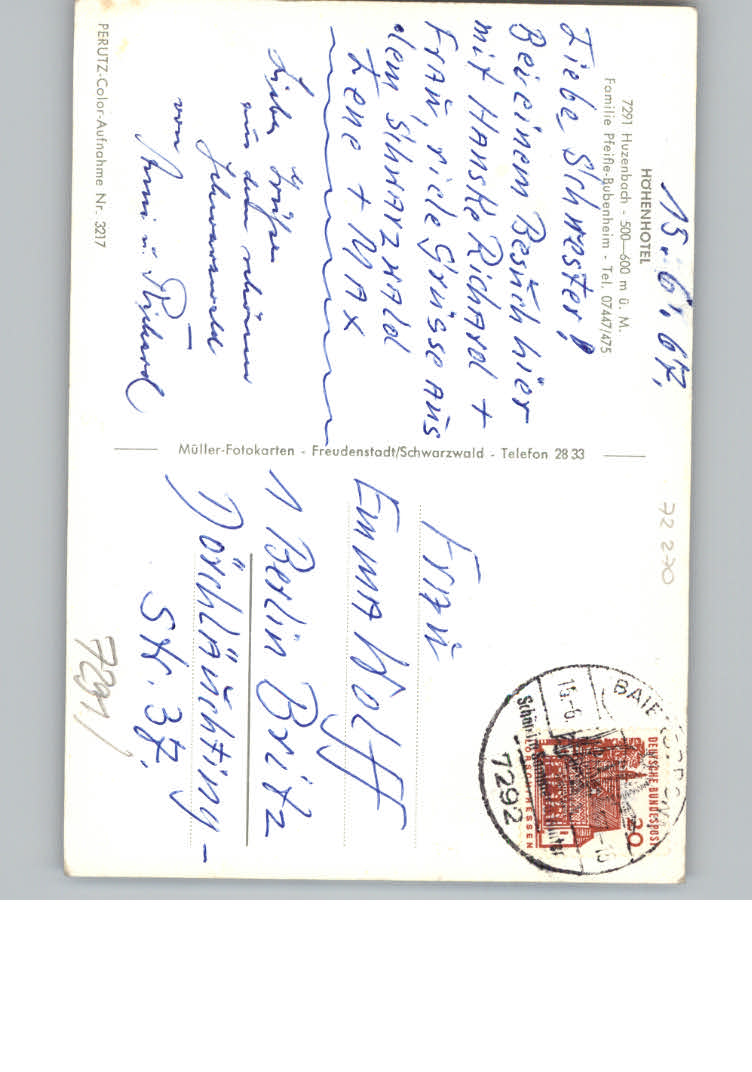 15.6.67.
HÖHENHOTEL
7291 Huzenbach - 500—600 m ü. M.
Familie Pfeifle-Bubenheim - Tel. 07447/475
Liebe Schwester!
Bei einem Besuch hier
mit Hanske Richard +
Frau, viele Grüsse aus
dem Schwarzwald
Lene + Max
Liebe Grüße
aus dem schönen
Schwarzwald
von Anni u. Richard
PERUTZ-Color-Aufnahme Nr. 3217
Müller-Fotokarten - Freudenstadt/Schwarzwald - Telefon 28 33
72 270
Frau
Emma Wolff
1 Berlin Britz
Dörchläuchting-
Str. 37.
7291/
DEUTSCHE BUNDESPOST
20
LORSCH HESSEN
7292